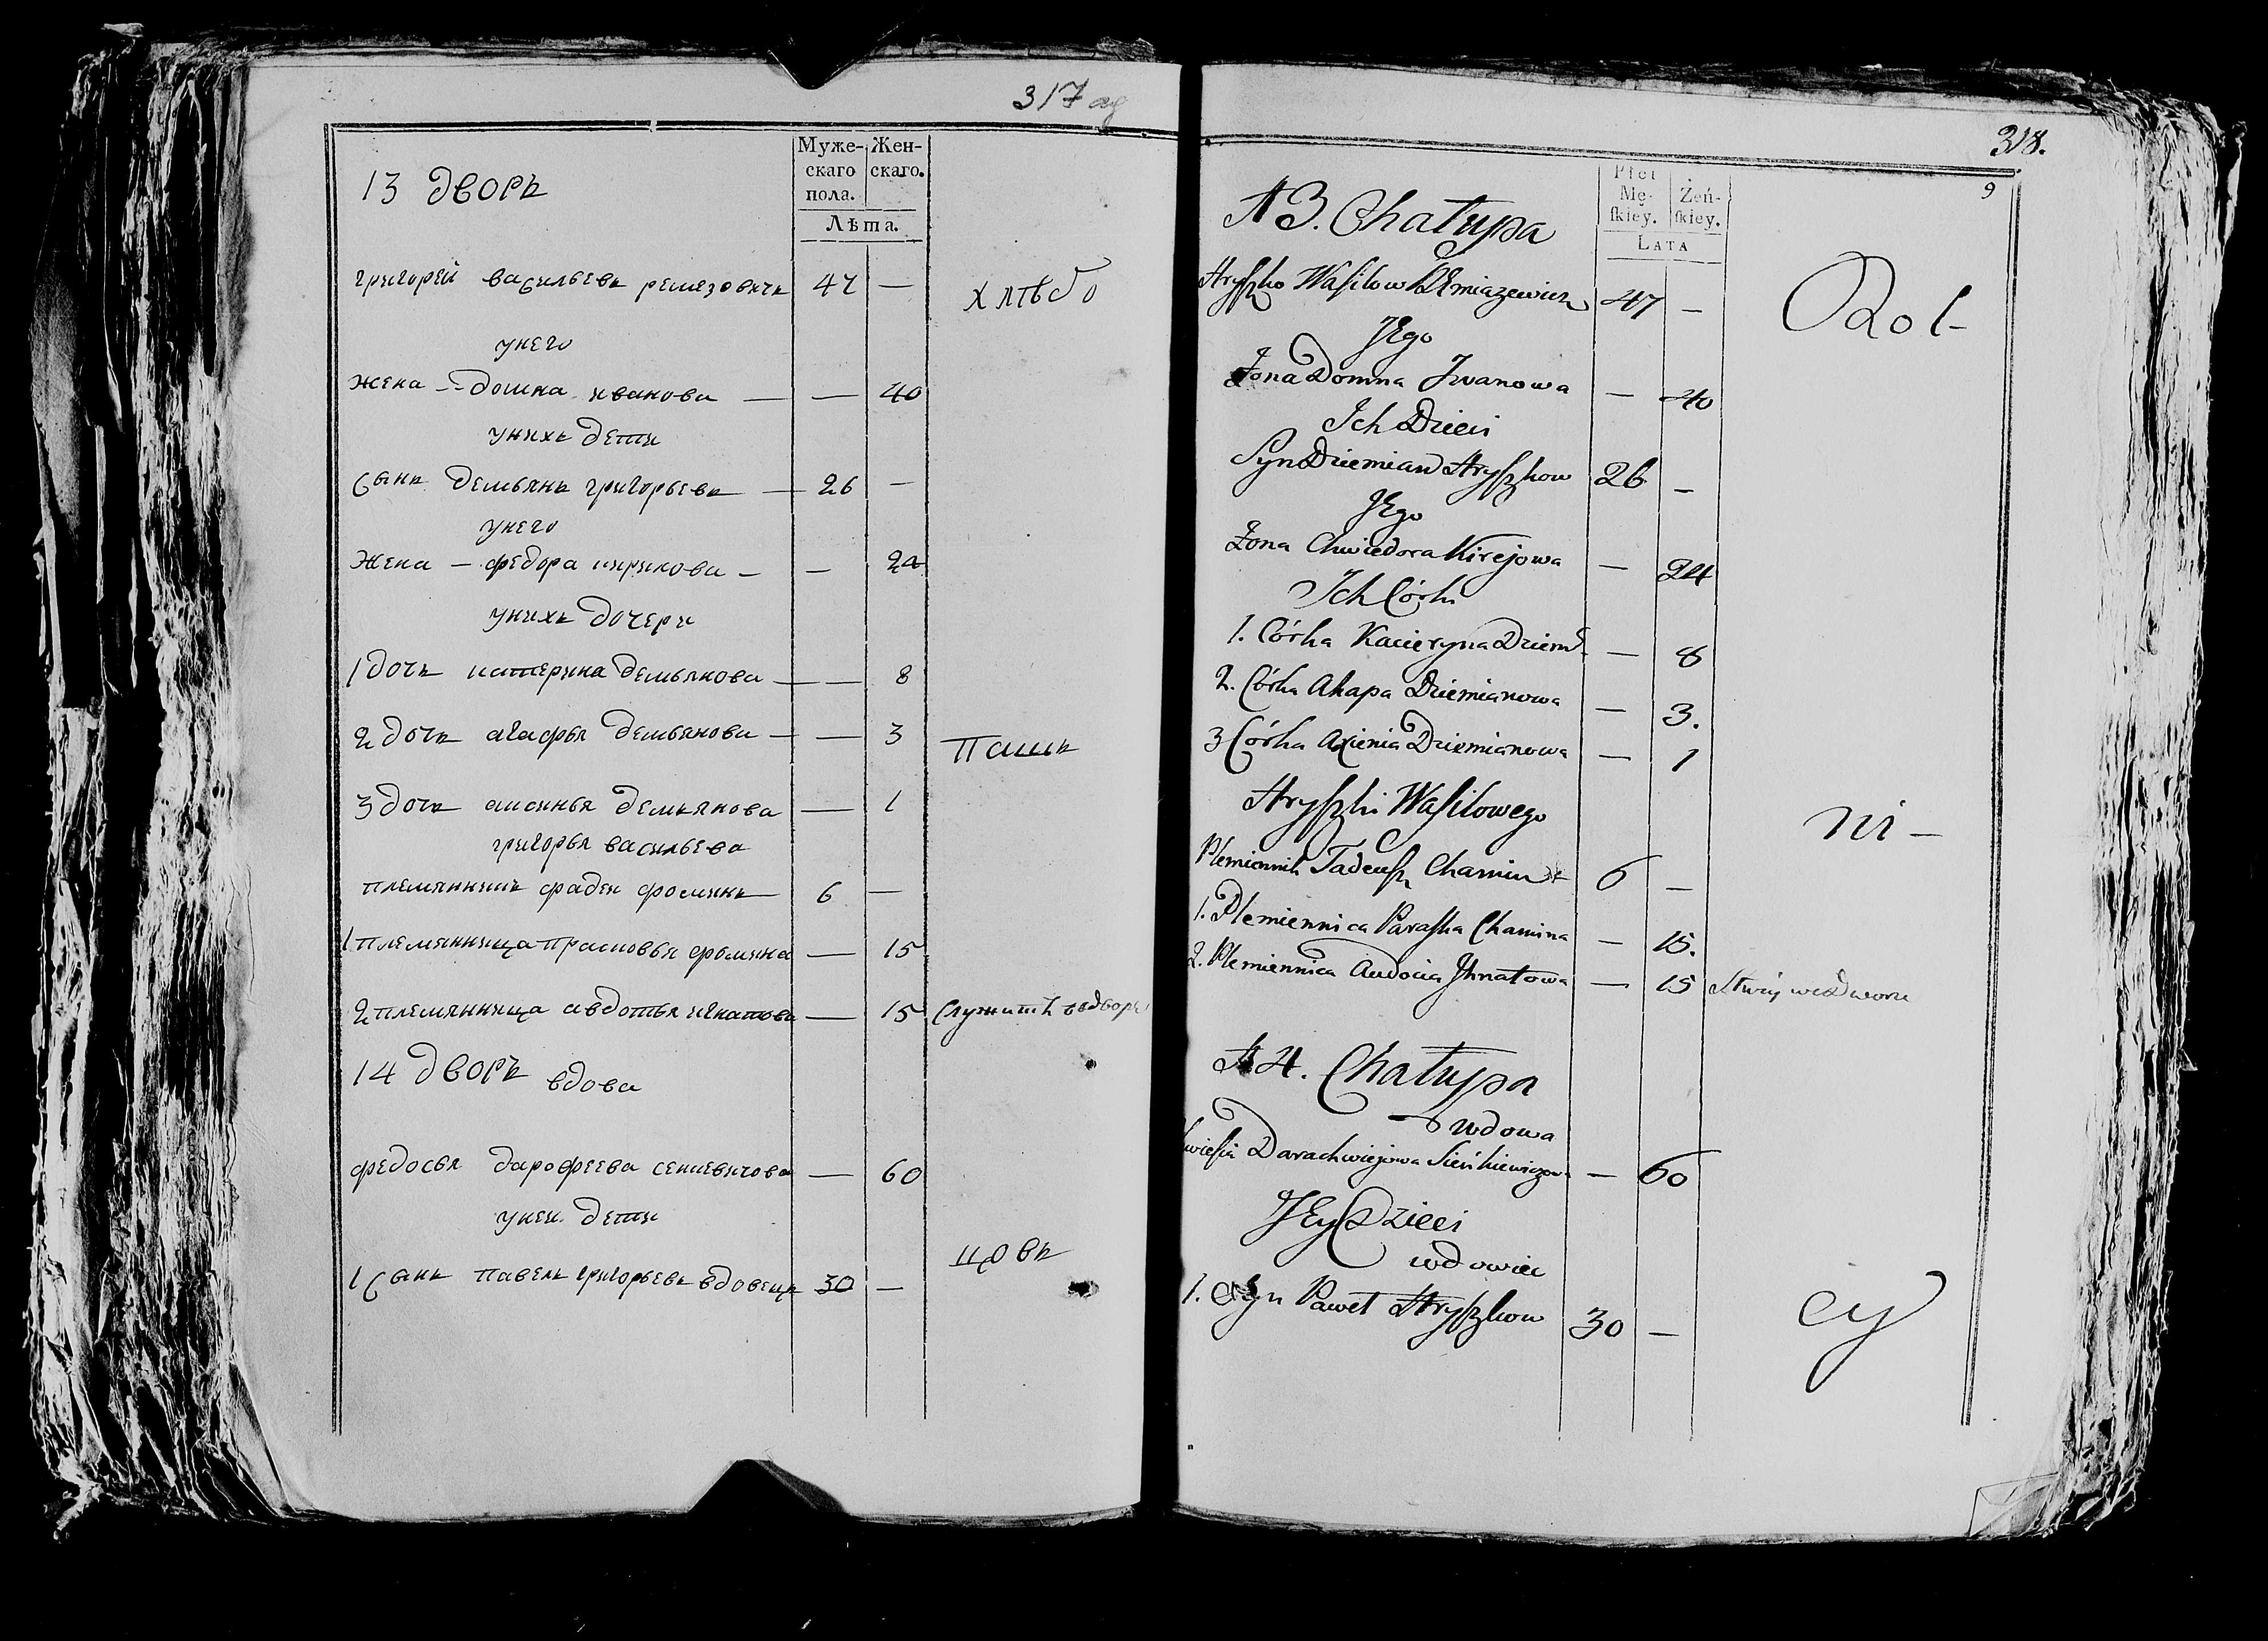 317
13 дворъ
Муже-
скаго
пола.
Жен-
скаго.
Лѣта.
григорей васильевъ ремезовичъ 47 —
хлѣбо
унего
жена -- домна иванова — — 40
унихъ дети
сынъ демьянъ григорьевъ — 26 —
унего
жена — федора кирикова — — 24
унихъ дочери
1 дочь катерина демьянова — — 8
2 дочь агафья демьянова — — 3
паш
3 дочь аксинья демьянова — 1
григорья васильева
племянникъ фадей фоминъ 6 —
1 племянница прасковья фомина — 15
2 племянница авдотья игнатова — 15 служитъ вдворе
14 дворъ вдова
федосья дарофеева сенкевичова — 60
унеи дети
цовъ
1 сынъ павелъ григорьевъ вдовецъ 30 —
318.
9
A3. Chałupa
Płci
Mę-
ſkiey.
Żeń-
ſkiey.
LATA
Hryſzko Waſilow Remiazewicz 47 —
Rol-
JEgo
Żona Domna Jwanowa — 40
Ich Dzieci
Syn Dziemian Hryſzkow 26 —
JEgo
Żona Chwiedora Kirejowa — 24
Ich Córki
1. Córka Kacieryna Dziem — 8
2. Córka Ahapa Dziemianowa — 3.
3 Córka Axienia Dziemianowa — 1
Hryſzki Waſilowego
ni-
Plemiennik Tadeuſz Chamin 6 —
1. Plemiennica Paraſka Chamina — 15.
2. Plemiennica Audocia Jhnatowa — 15 Służy we Dworze
A4. Chałupa
wdowa
Chwieſia Darachwiejowa Sieńkiewiczowa — 60
JEy Dzieci
wdowiec
cy
1. Syn Paweł Hryſzkow 30 —